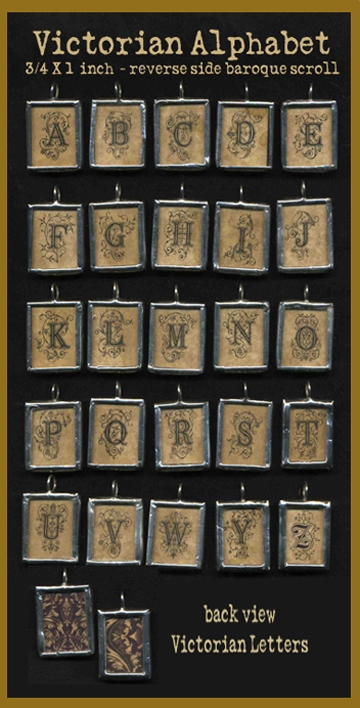 Victorian Alphabet
3/4 X 1 inch - reverse side baroque scroll
A B C D E
F G H I J
K L M N O
P Q R S T
U V W Y Z
back view
Victorian Letters